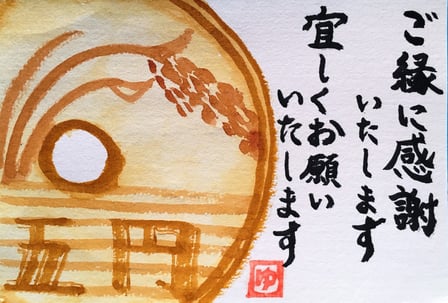 ご縁に感謝
いたします
宜しくお願い
いたします
五円
ゆ